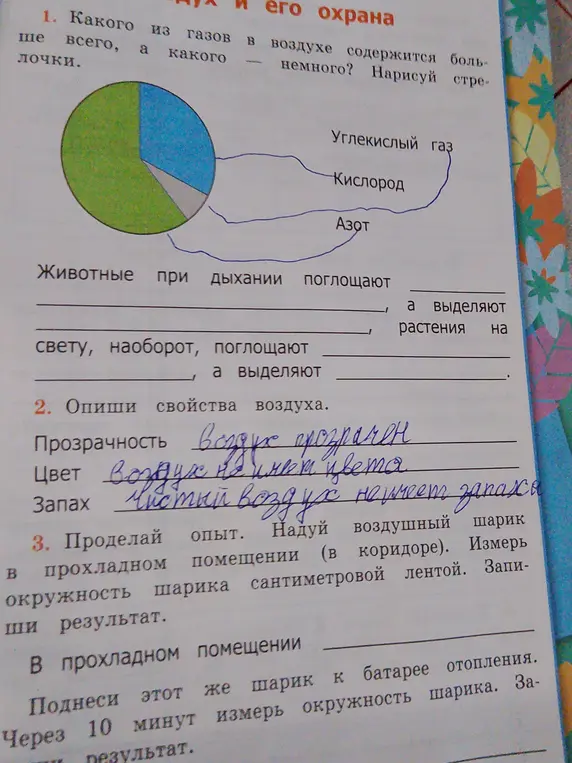 и его охрана
1. Какого из газов в воздухе содержится боль-
ше всего, а какого — немного? Нарисуй стре-
лочки.
Углекислый газ
Кислород
Азот
Животные при дыхании поглощают
, а выделяют
, растения на
свету, наоборот, поглощают
, а выделяют .
2. Опиши свойства воздуха.
Прозрачность воздух прозрачен
Цвет воздух не имеет цвета
Запах чистый воздух не имеет запаха
3. Проделай опыт. Надуй воздушный шарик
в прохладном помещении (в коридоре). Измерь
окружность шарика сантиметровой лентой. Запи-
ши результат.
В прохладном помещении
Поднеси этот же шарик к батарее отопления.
Через 10 минут измерь окружность шарика. За-
результат.